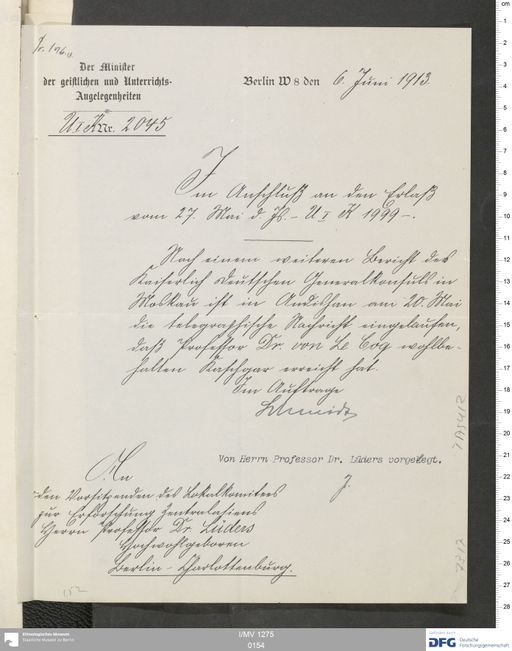 Der Minister
der geistlichen und Unterrichts-
Angelegenheiten
U I K Nr. 2045
Berlin W 8 den 6. Juni 1913.
Im Anschluß an den Erlaß
vom 27. Mai d. Js. – U I K 1999 –.
Nach einem weiteren Bericht des
Kaiserlich Deutschen Generalkonsuls in
Moskau ist in Andishan am 20. Mai
die telegraphische Nachricht eingelaufen,
daß Professor Dr. von Le Coq wohlbe-
halten Kaschgar erreicht hat.
Im Auftrage
Schmidt
Von Herrn Professor Dr. Lüders vorgelegt.
An
den Vorsitzenden des Lokalkomitees
zur Erforschung Zentralasiens
Herrn Professor Dr. Lüders
Hochwohlgeboren
Berlin - Charlottenburg.
Ethnologisches Museum
Staatliche Museen zu Berlin
I/MV 1275
0154
DFG
Deutsche
Forschungsgemeinschaft